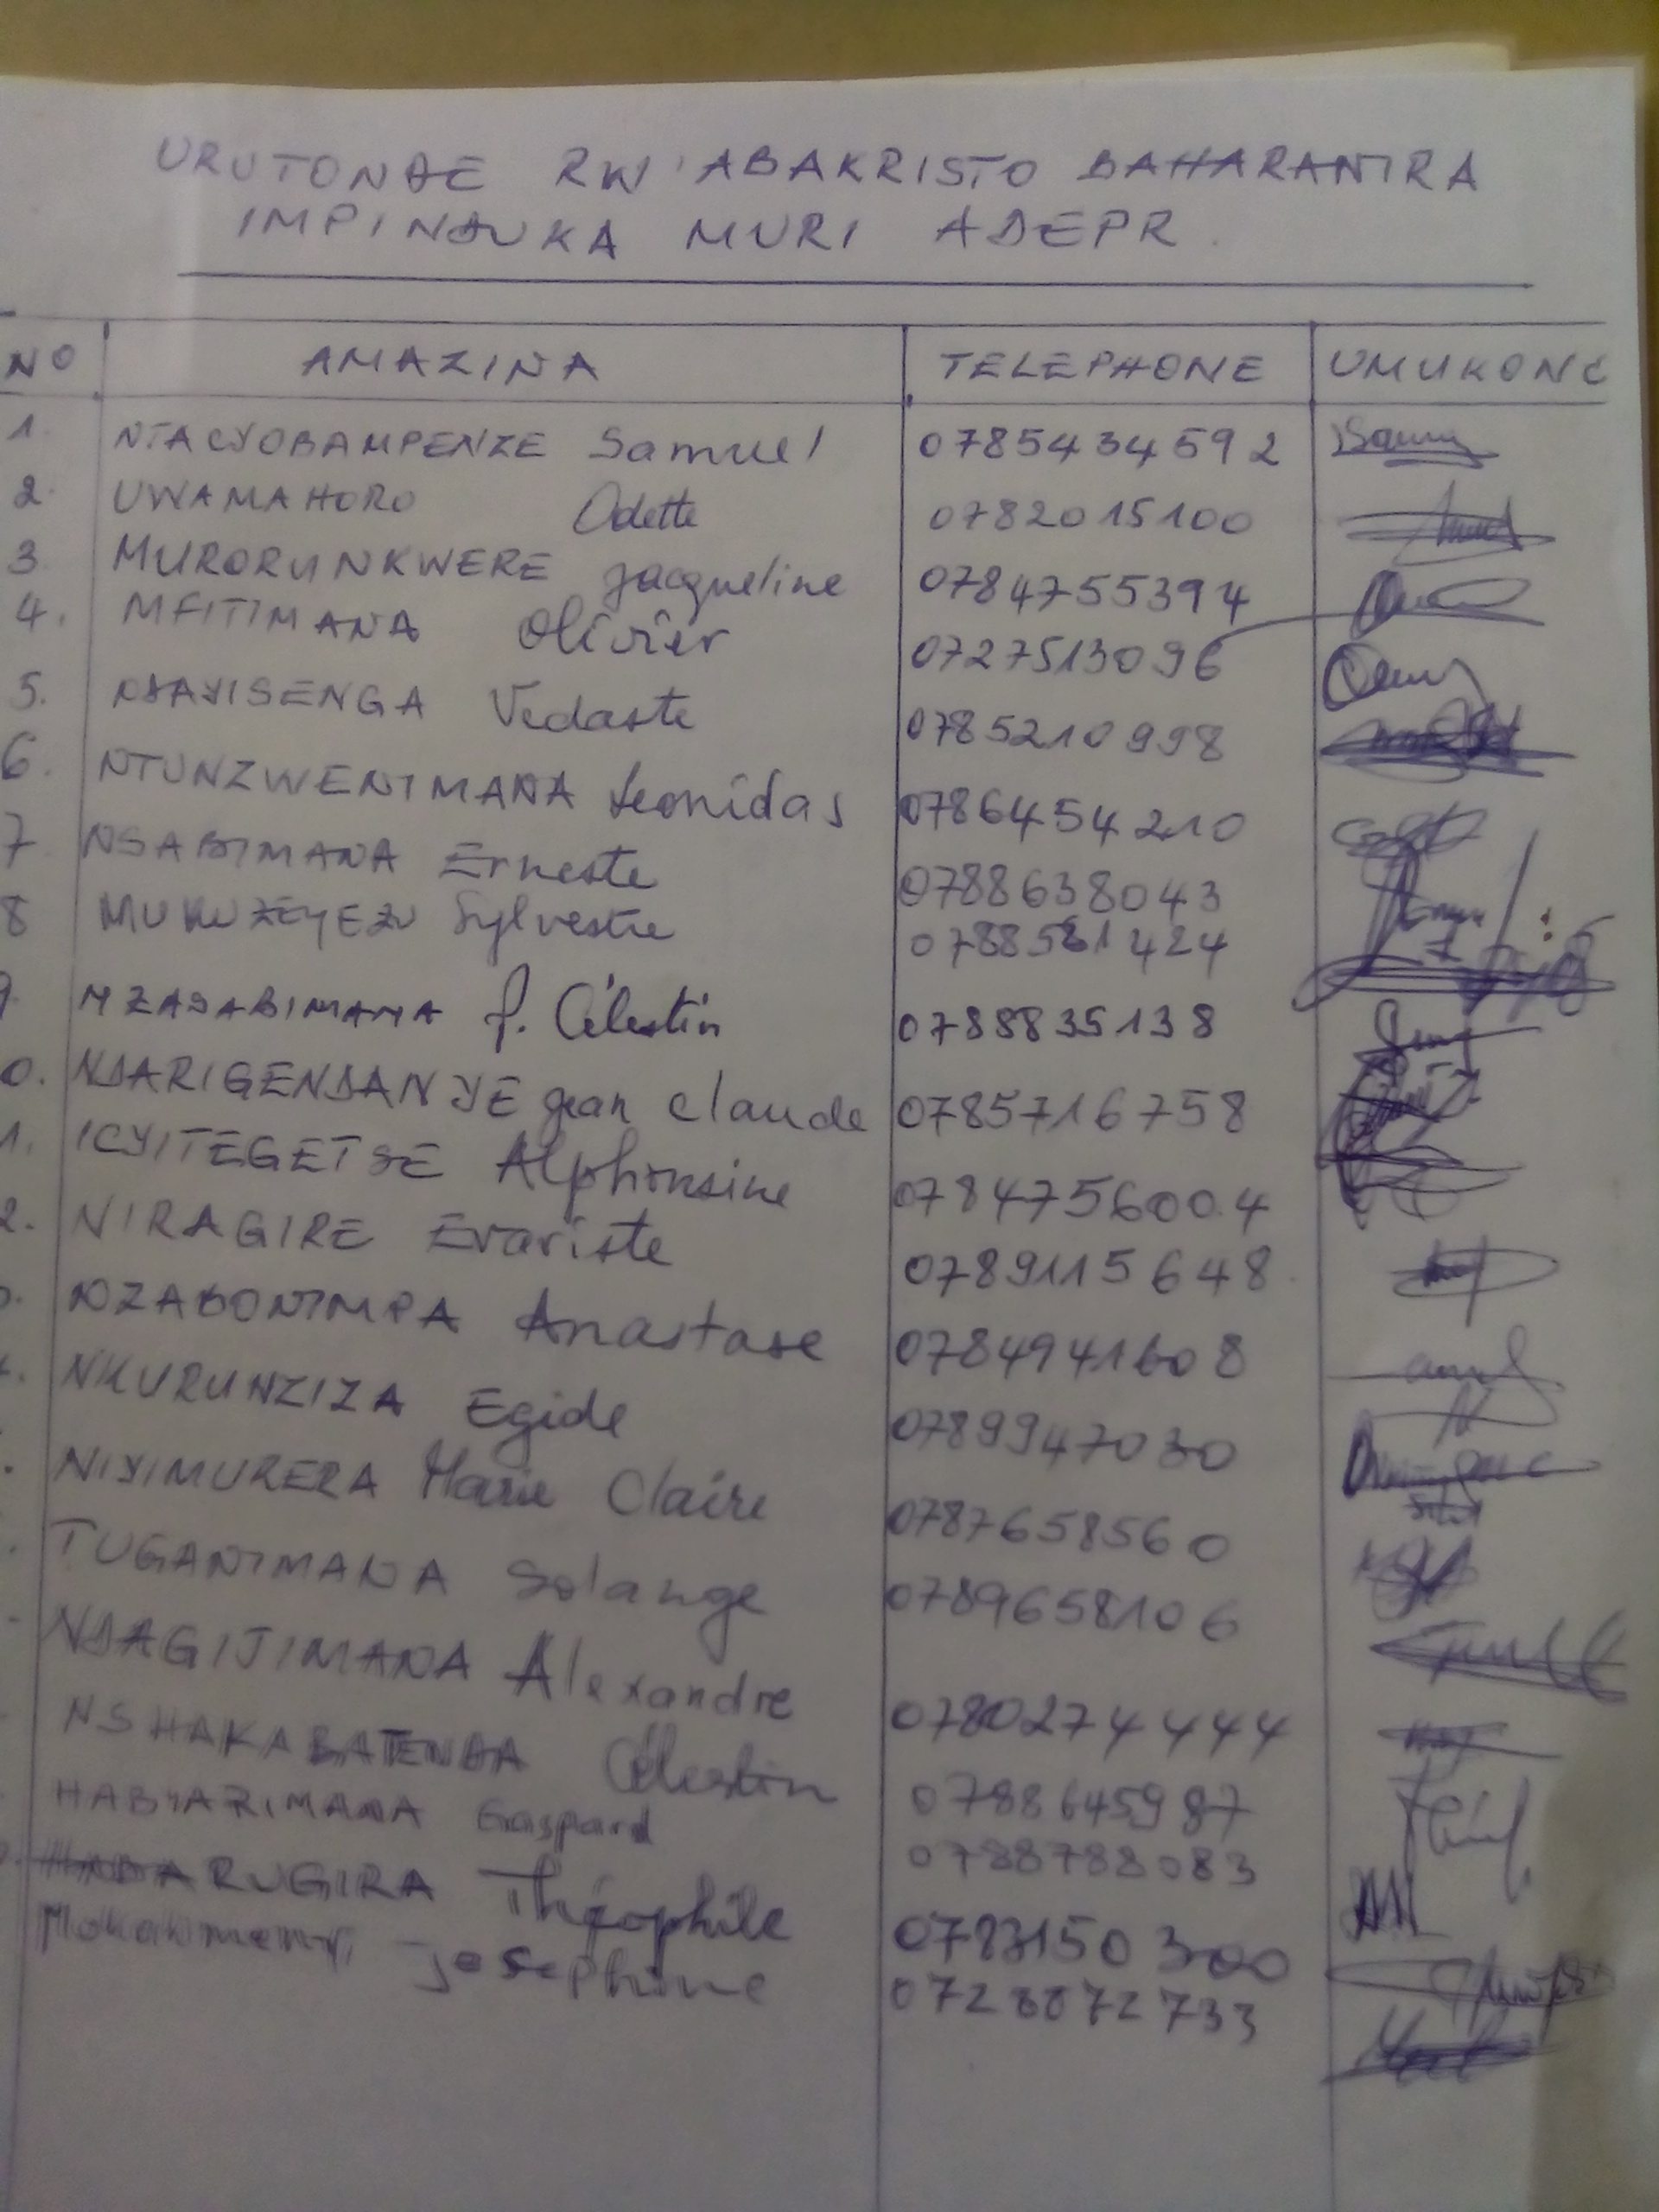 URUTONDE RW'ABAKRISTO BAHARANIRA
IMPINDUKA MURI ADEPR.
NO AMAZINA TELEPHONE UMUKONO
1. NTACYOBAMPENZE Samuel 0785434592
2. UWAMAHORO Odette 0782015100
3 MURORUNKWERE Jacqueline 0784755394
4. MFITIMANA Olivier 0727513096
5. NDAYISENGA Vedaste 0785210998
6. NTUNZWENIMANA Leonidas 0786454210
7 NSABIMANA Erneste 0788638043
8 Sylvestre
9. NZASABIMANA J. Célestin 0788835138
0. NDARIGENDANYE Jean Claude 0785716758
1. ICYITEGETSE Alphonsine 0784756004
2. NIRAGIRE Evariste 0789115648
NZABONIMPA Anastase 0784941608
NKURUNZIZA Egide 0789947030
NIYIMURERA Marie Claire 0787658560
TUGANIMANA Solange 0789658106
NDAGIJIMANA Alexandre 0780274444
NSHAKABATENDA Célestin 0788645987
HABYARIMANA Gaspard 0788788083
RUGIRA Théophile
Josephine 0728872733